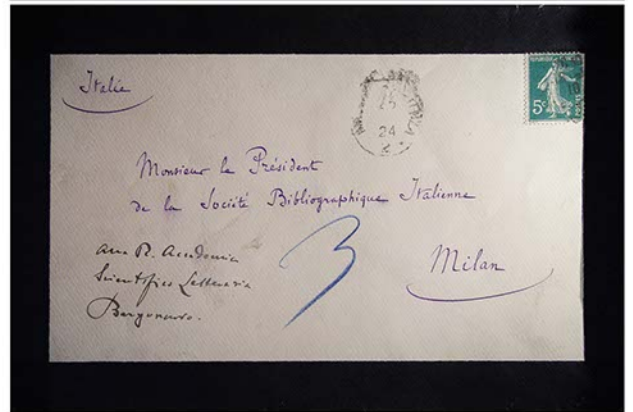 Italie
5c
24
Monsieur le Président
de la Société Bibliographique Italienne
Milan
3
R. Accademia
Scientifico Letteraria